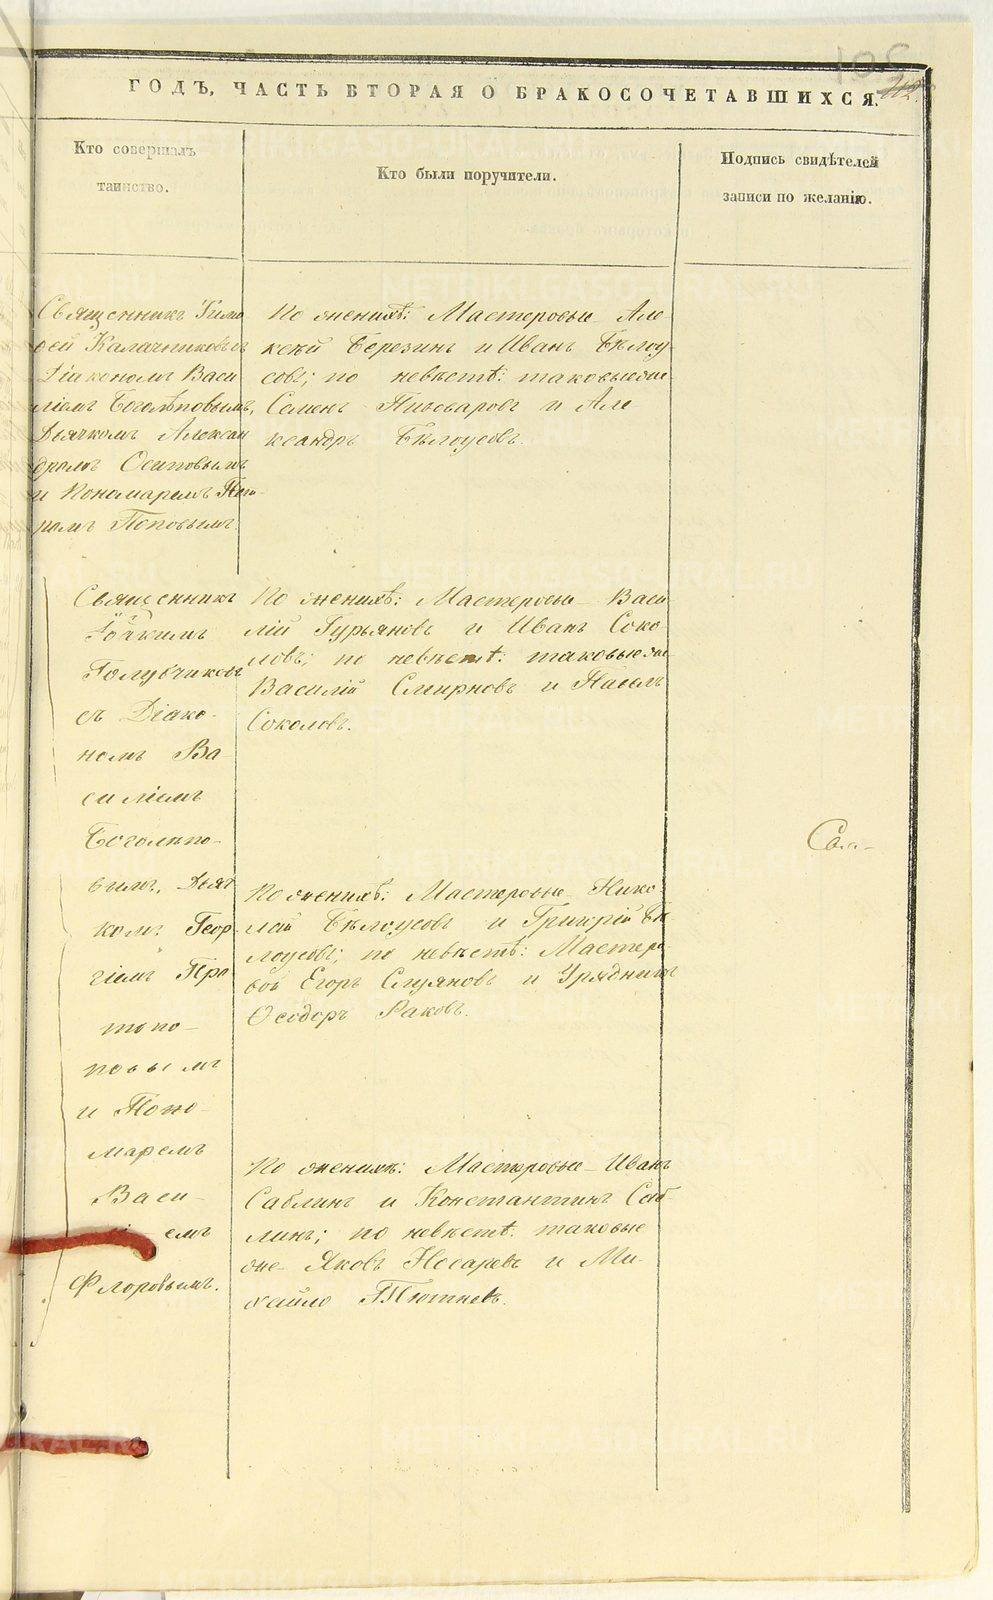 105
ГОДЪ, ЧАСТЬ ВТОРАЯ О БРАКОСОЧЕТАВШИХСЯ.
Кто совершалъ
таинство.
Кто были поручители.
Подпись свидѣтелей
записи по желанію.
Священникъ Тимо
ѳей Калачниковъ съ
Діакономъ Васи
ліемъ Боголѣповымъ,
Дьячкомъ Алексан
дромъ Осиповымъ
и Пономаремъ Пет
ромъ Поповымъ.
По женихѣ: Мастеровые Але
ксѣй Березинъ и Иванъ Бѣлоу
совъ; по невѣстѣ: таковыеже
Семенъ Пивоваровъ и Але
ксандръ Бѣлоусовъ.
Священникъ
Іоакимъ
Голубчиковъ
съ Діако-
номъ Ва
силіемъ
Боголѣпо-
вымъ, Дьяч
комъ Геор-
гіемъ Про
топо-
повымъ
и Поно-
маремъ
Васи-
емъ
Флоровымъ.
По женихѣ: Мастеровые Васи
лій Гурьяновъ и Иванъ Соко
ловъ; по невѣстѣ: таковыеже
Василій Смирновъ и Павелъ
Соколовъ.
По женихѣ: Мастеровые Нико
лай Бѣлоусовъ и Григрій Бѣ
лоусовъ; по невѣстѣ: Мастеро
вой Егоръ Слуяновъ и Урядникъ
Ѳеодоръ Раковъ.
По женихѣ: Мастеровые Иванъ
Саблинъ и Константинъ Саб
линъ; по невѣстѣ: таковые
же Яковъ Носаревъ и Ми-
хайло Тютневъ.
METRIKI.GASO-URAL.RU